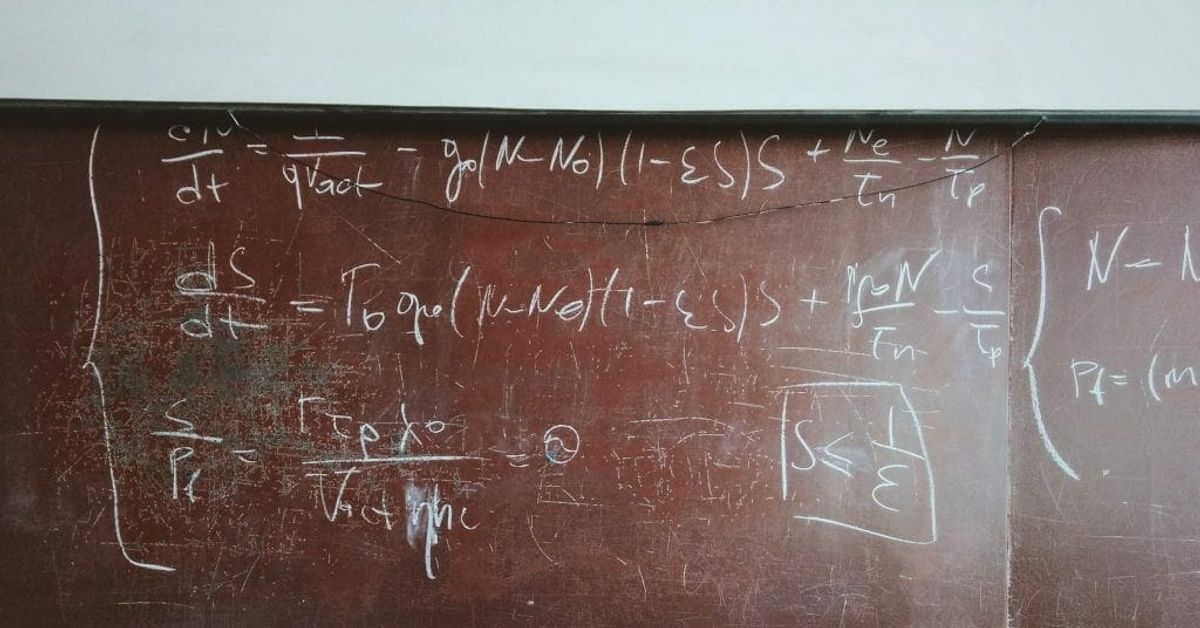 dN/dt = 1/qVact - g₀(N-N₀)(1-εS)S + Ne/τn - N/τp
dS/dt = Γ₀ g₀(N-N₀)(1-εS)S + N/τn - S/τp
S/Pf = Γτpλ₀/Vactηhc =
S ≤ 1/ε
N -
Pf = (m